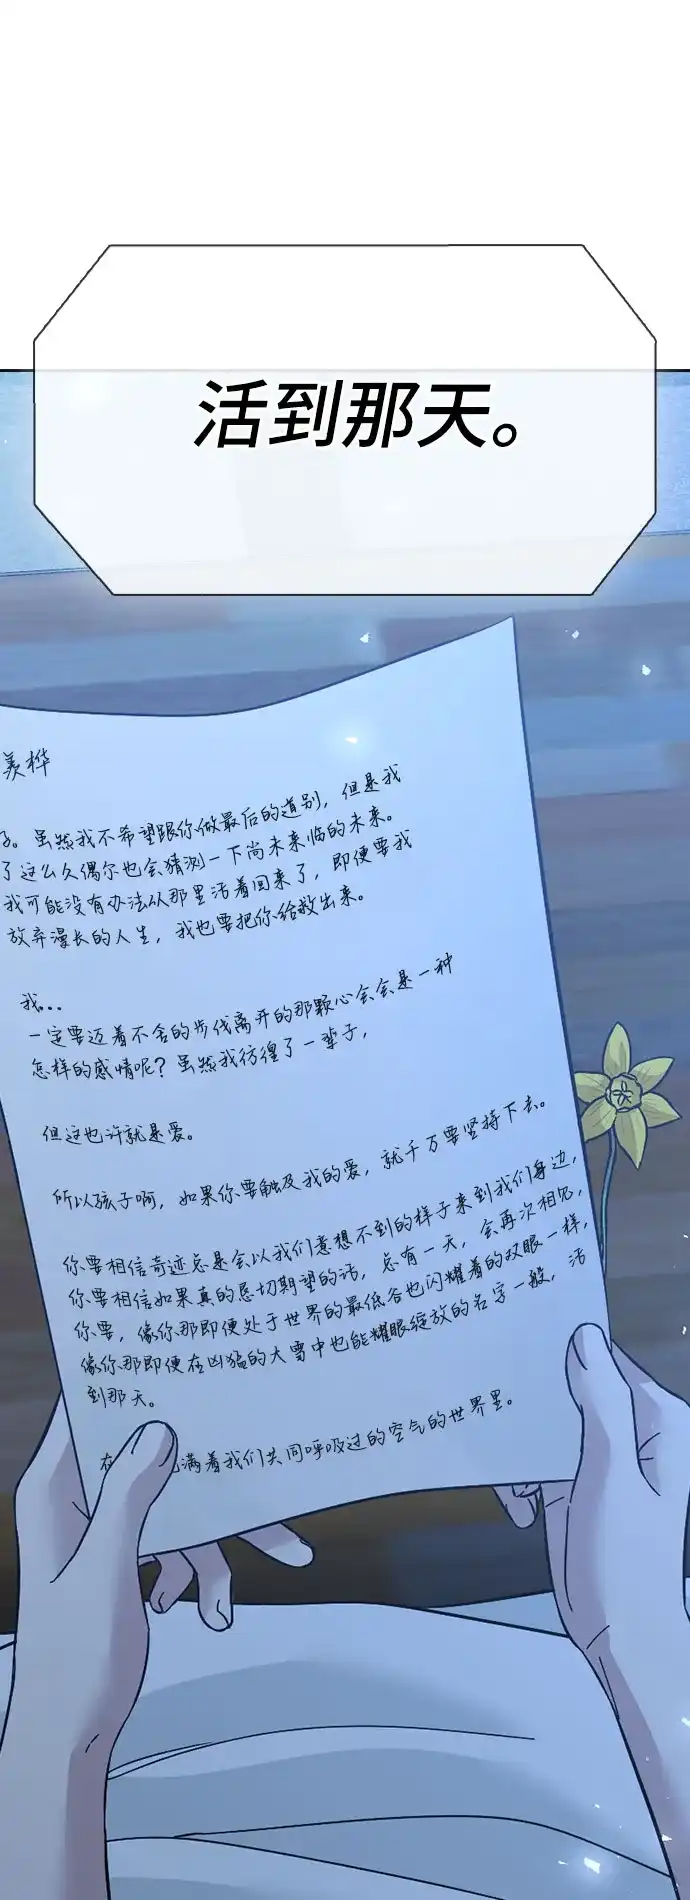 活到那天。
羡桦
子。虽然我不希望跟你做最后的道别，但是我
了这么久偶尔也会猜测一下尚未来临的未来。
我可能没有办法从那里活着回来了，即便要我
放弃漫长的人生，我也要把你给救出来。
我...
一定要迈着不舍的步伐离开的那颗心会会是一种
怎样的感情呢？虽然我彷徨了一辈子，
但这也许就是爱。
所以孩子啊，如果你要触及我的爱，就千万要坚持下去。
你要相信奇迹总是会以我们意想不到的样子来到我们身边，
你要相信如果真的恳切期望的话，总有一天，会再次相见，
你要，像你那即便处于世界的最低谷也闪耀着的双眼一样，
像你那即便在凶猛的大雪中也能耀眼绽放的名字一般，活
到那天。
在 满着我们共同呼吸过的空气的世界里。